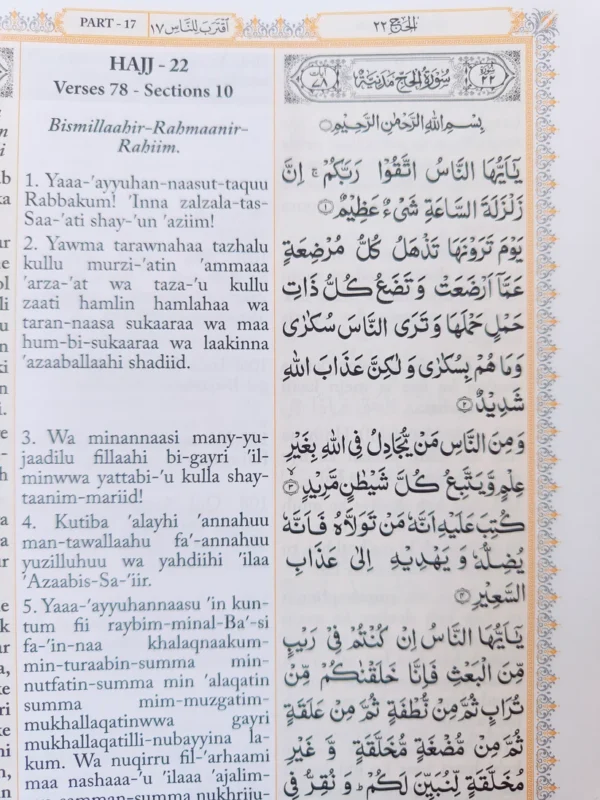 PART - 17
اقترب للناس ١٧
الحج ٢٢
HAJJ - 22
Verses 78 - Sections 10
Bismillaahir-Rahmaanir-
Rahiim.
1. Yaaa-'ayyuhan-naasut-taquu
Rabbakum! 'Inna zalzala-tas-
Saa-'ati shay-'un 'aziim!
2. Yawma tarawnahaa tazhalu
kullu murzi-'atin 'ammaaa
'arza-'at wa taza-'u kullu
zaati hamlin hamlahaa wa
taran-naasa sukaaraa wa maa
hum-bi-sukaaraa wa laakinna
'azaaballaahi shadiid.
3. Wa minannaasi many-yu-
jaadilu fillaahi bi-gayri 'il-
minwwa yattabi-'u kulla shay-
taanim-mariid!
4. Kutiba 'alayhi 'annahuu
man-tawallaahu fa'-annahuu
yuzilluhuu wa yahdiihi 'ilaa
'Azaabis-Sa-'iir.
5. Yaaa-'ayyuhannaasu 'in kun-
tum fii raybim-minal-Ba'-si
fa-'in-naa khalaqnaakum-
min-turaabin-summa min-
nutfatin-summa min 'alaqatin
summa mim-muzgatim-
mukhallaqatinwwa gayri
mukhallaqatilli-nubayyina la-
kum. Wa nuqirru fil-'arhaami
maa nashaaa-'u 'ilaaa 'ajalim-
سورة ٢٢
سُوْرَةُ الْحَجِّ مَدَنِيَّةٌ
آيات ٧٨
بِسْمِ اللهِ الرَّحْمٰنِ الرَّحِيْمِ
يٰۤاَيُّهَا النَّاسُ اتَّقُوْا رَبَّكُمْ ۚ اِنَّ
زَلْزَلَةَ السَّاعَةِ شَيْءٌ عَظِيْمٌ ۝١
يَوْمَ تَرَوْنَهَا تَذْهَلُ كُلُّ مُرْضِعَةٍ
عَمَّاۤ اَرْضَعَتْ وَ تَضَعُ كُلُّ ذَاتِ
حَمْلٍ حَمْلَهَا وَ تَرَى النَّاسَ سُكٰرٰى
وَ مَا هُمْ بِسُكٰرٰى وَ لٰكِنَّ عَذَابَ اللهِ
شَدِيْدٌ ۝٢
وَ مِنَ النَّاسِ مَنْ يُّجَادِلُ فِي اللهِ بِغَيْرِ
عِلْمٍ وَّ يَتَّبِعُ كُلَّ شَيْطٰنٍ مَّرِيْدٍ ۝٣
كُتِبَ عَلَيْهِ اَنَّهٗ مَنْ تَوَلَّاهُ فَاَنَّهٗ
يُضِلُّهٗ وَ يَهْدِيْهِ اِلٰى عَذَابِ
السَّعِيْرِ ۝٤
يٰۤاَيُّهَا النَّاسُ اِنْ كُنْتُمْ فِيْ رَيْبٍ
مِّنَ الْبَعْثِ فَاِنَّا خَلَقْنٰكُمْ مِّنْ
تُرَابٍ ثُمَّ مِنْ نُّطْفَةٍ ثُمَّ مِنْ عَلَقَةٍ
ثُمَّ مِنْ مُّضْغَةٍ مُّخَلَّقَةٍ وَّ غَيْرِ
مُخَلَّقَةٍ لِّنُبَيِّنَ لَكُمْ ؕ وَ نُقِرُّ فِي